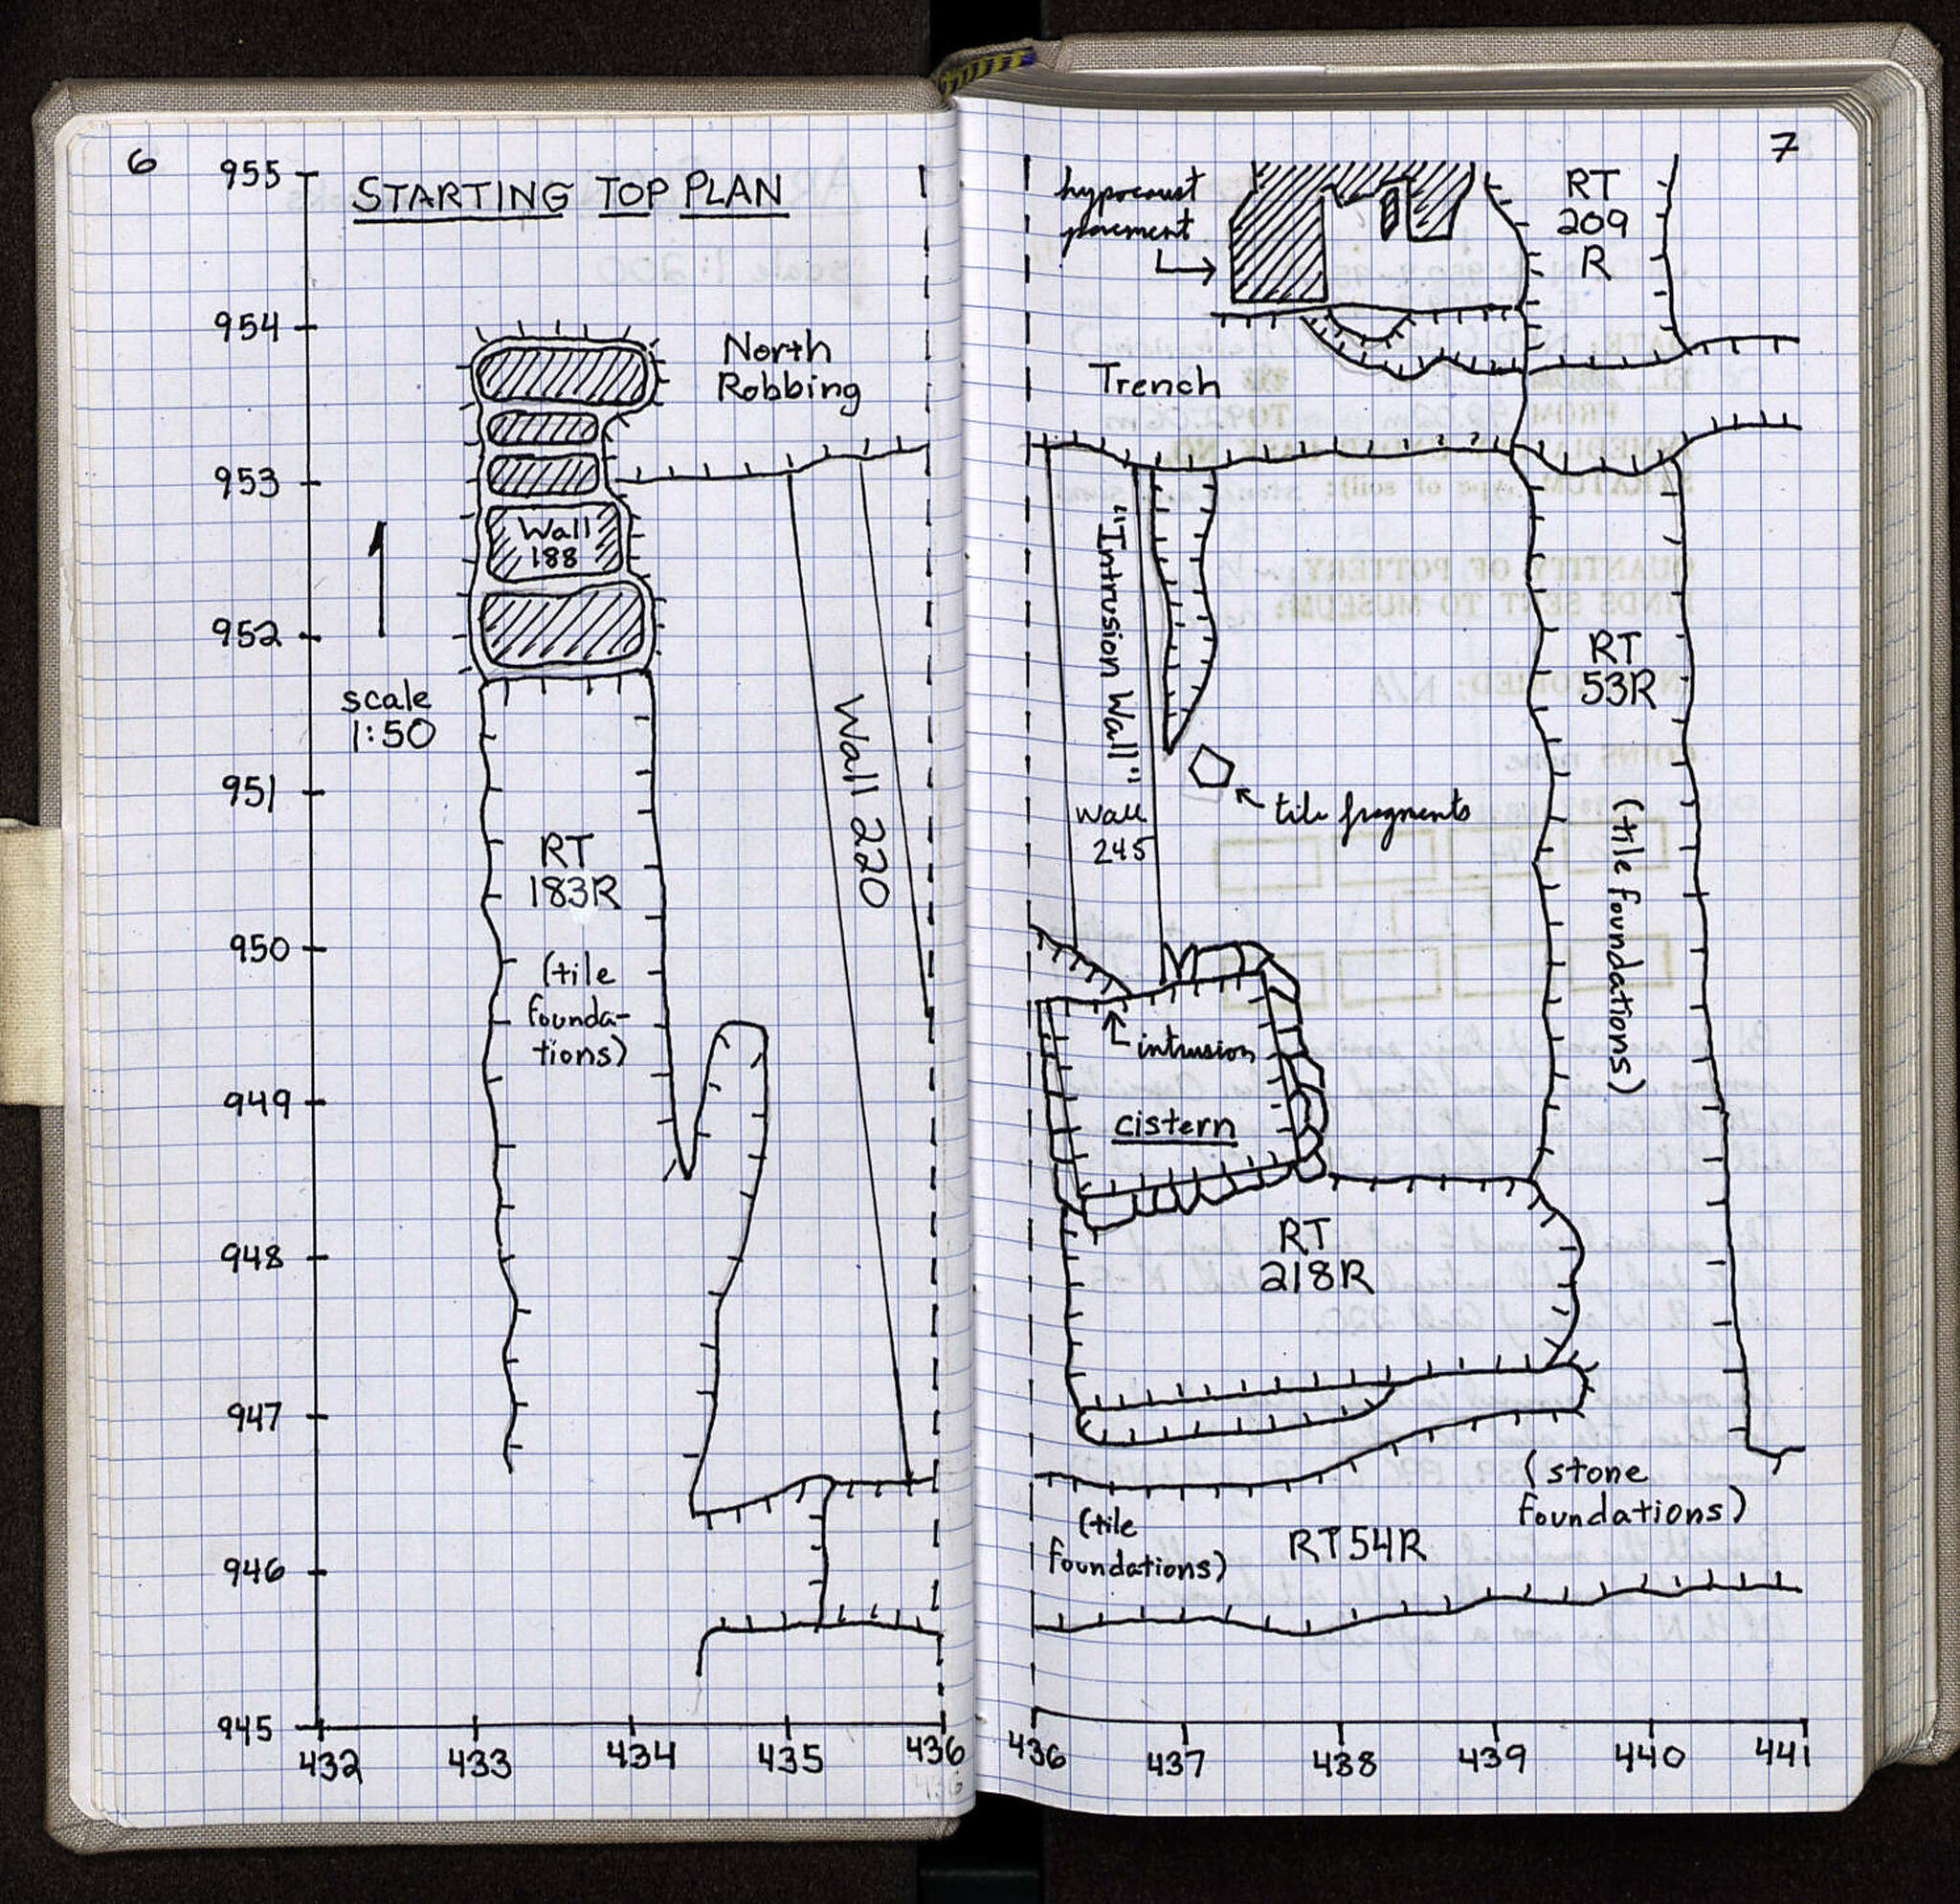 6
STARTING TOP PLAN
955
954
953
952
951
950
949
948
947
946
945
North
Robbing
Wall
188
scale
1:50
RT
183R
(tile
founda-
tions)
Wall 220
432
433
434
435
436
7
hypocaust
pavement
RT
209
R
Trench
"Intrusion Wall"
Wall
245
tile fragments
RT
53R
(tile foundations)
intrusion
cistern
RT
218R
(stone
foundations)
(tile
foundations)
RT54R
436
437
438
439
440
441